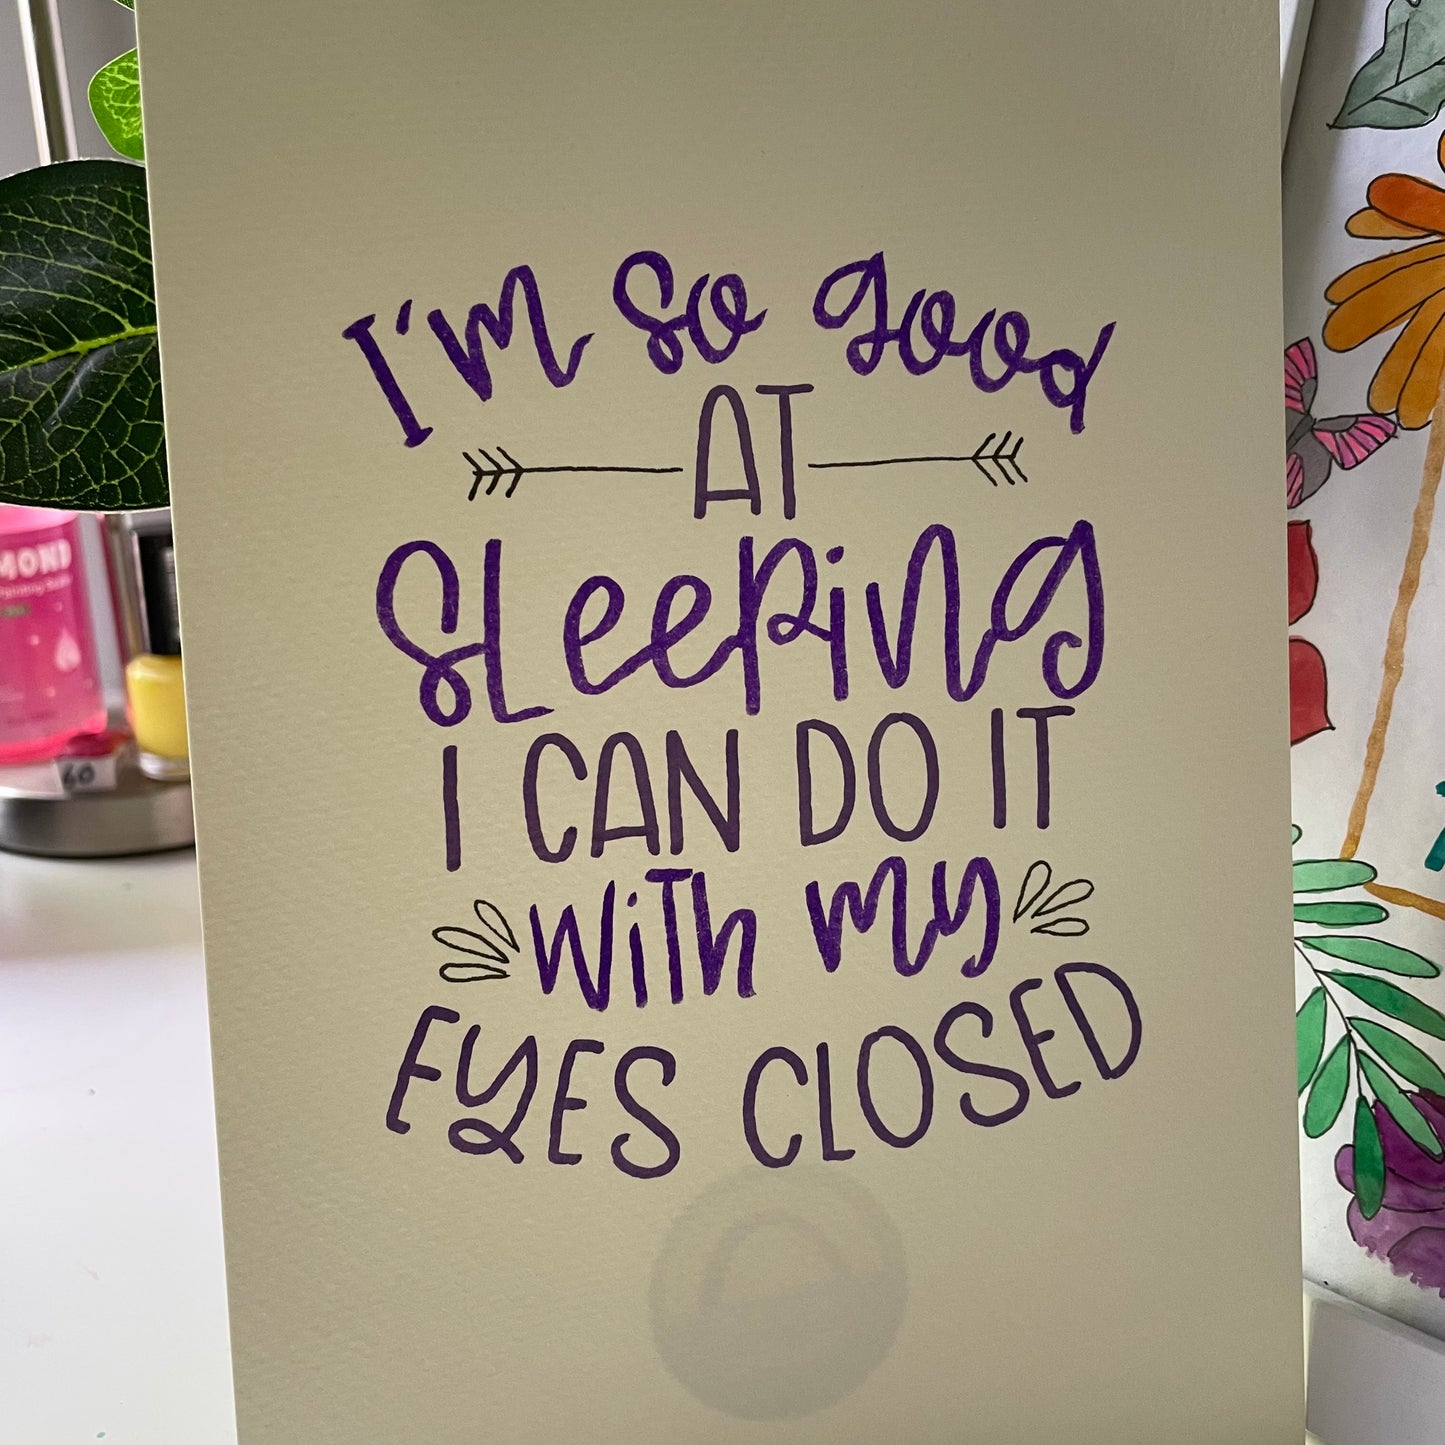 I'm so good
AT
sleeping
I CAN DO IT
with my
EYES CLOSED
MOND
60